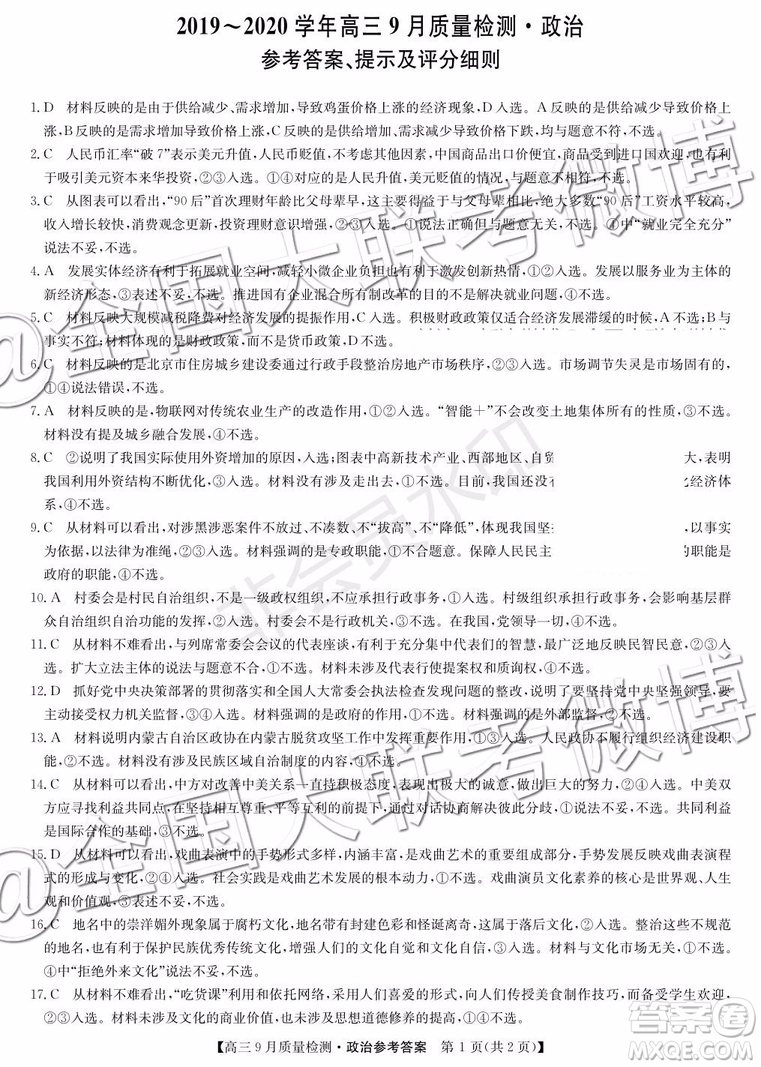 2019～2020 学年高三 9 月质量检测·政治
参考答案、提示及评分细则
1. D　材料反映的是由于供给减少、需求增加,导致鸡蛋价格上涨的经济现象,D入选。A反映的是供给减少导致价格上
涨,B反映的是需求增加导致价格上涨,C反映的是供给增加导致价格下跌,均与题意不符,不选。
2. C　人民币汇率“破7”表示美元升值,人民币贬值,不考虑其他因素,中国商品出口价便宜,商品出口到进口国欢迎,也有利
于吸引美元资本来华投资,②③入选。①④对应的是人民币升值,美元贬值的情况,与题意不符,不选。
3. C　从图表可以看出,“90后”首次理财年龄比父母辈早,这主要得益于与父母辈相比,绝大多数“90后”工资水平较高,
收入增长较快,消费观念更新,投资理财意识增强,②③入选。①说法正确但与题意无关,不选。④中“就业完全充分”
说法不妥,不选。
4. A　发展实体经济有利于拓展就业空间,减轻小微企业负担也有利于激发创新热情,①②入选。发展以服务业为主体的
新经济形态,③表述不妥,不选。目前国有企业混合所有制的改革未涉及,④不选。
5. C　材料反映大规模减税降费对经济发展的提振作用,C入选。积极财政政策仅适合经济发展滞缓的时候,A不选;B与
事实不符;材料体现的是财政政策,而不是货币政策,D不选。
6. C　材料反映的是北京市住房城乡建设委通过行政手段整治房地产市场秩序,②③入选。市场调节失灵是市场自
,①④说法错误,不选。
7. A　材料反映的是,物联网对传统农业生产的改造作用,①②入选。“智能＋”不会改变土地集体所有的性质,③不选。
材料没有提及城乡融合发展,④不选。
8. C　②说明了我国实际使用外资增加的原因;图表中高新技术产业、西部地区、自
大,表明
我国利用外资结构不断优化,③入选。材料没有涉及走出去,①不选。目前,我国还没
化经济体
系,④不选。
9. C　从材料可以看出,对涉黑涉恶案件不放过、不凑数、不“拔高”、不“降低”,体现我国坚
,以事实
为依据,以法律为准绳,②③入选。材料强调的是专政职能,①不合题意。保障人民民
的职能是
政府的职能,④不选。
10. A　村委会是村民自治组织,不是一级政权组织,不应承担行政事务,①入选。村级组织承担行政事务,会影响基层群
众自治组织自治功能的发挥,②入选。村委会不是行政机关,③不选。在我国,党领导一切,④不选。
11. C　从材料不难看出,与列席常委会会议的代表座谈,有利于充分集中代表们的智慧,最广泛地反映民意,②③入选。
入选。扩大立法主体的说法与题意无关,①不选。材料未涉及代表行使提案权和质询权,④不选。
12. D　抓好党中央决策部署的贯彻落实和全国人大常委会执法检查发现问题的整改,说明了要坚持党中央坚强领导,要
主动接受权力机关的监督,③④入选。①强调的是政府的作用,不选。②强调的是外部监督,②不选。
13. A　材料说明内蒙古自治区政协在内蒙古脱贫攻坚工作中的作用,①②入选。人民政协不直接组织经济建设工作,
③不选。材料与民族区域自治制度的内容无关,④不选。
14. C　从材料可以看出,中方对改善中美关系一直持积极态度,做出巨大的努力,②④入选。中美双方
有许多利益共同点,在坚持平等和互利的前提下,通过对话协商解决彼此分歧,①说法不妥,不选。共同利益
是国际合作的基础,③不选。
15. D　从材料可以看出,戏曲表演中的手势形式多样,内涵丰富,是戏曲艺术的重要组成部分,手势发展反映戏曲表演程
式的形成与变化,③④入选。手势艺术不是戏曲艺术的基础,①不选。戏曲演员文化素养的核心是世界观、人生
观和价值观,②不选。
16. C　地名中的崇洋媚外现象属于腐朽文化,地名带有封建色彩和怪诞离奇,这属于落后文化,整治这些不大规范的
地名,有利于保护民族优秀传统文化,②③入选。材料与文化环境无关,①不选。
④中“拒绝外来文化”说法不妥,不选。
17. C　从材料可以看出,“吃货课”利用和依托网络,内容丰富,形式新颖,有利于传授美食制作技巧,而受到学生欢迎,
②③入选。材料没有涉及文化交流,①不选。④表述不妥,不选。
【高三9月质量检测·政治参考答案　第 1 页(共 2 页)】
@全国大联考微博
@全国大联考微博
非会员水印
作业帮